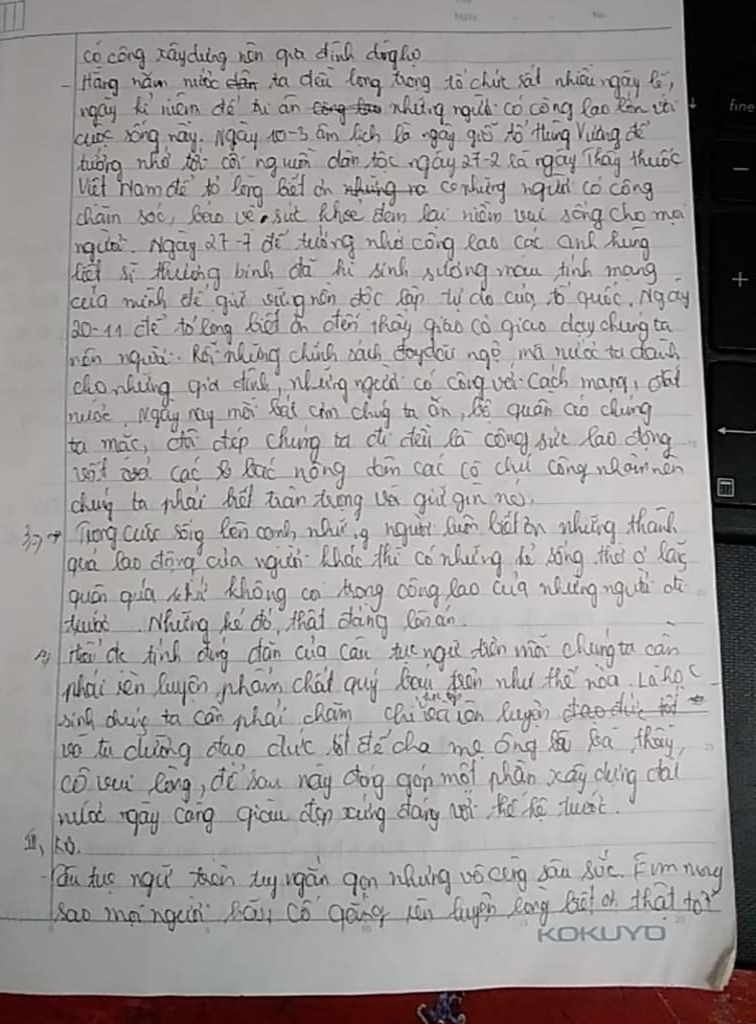 Ngày No.
có công xây dựng nên gia đình dòng họ
- Hàng năm nước dân ta đều long trọng tổ chức rất nhiều ngày lễ,
ngày kỉ niệm để tri ân công lao những người có công lao lớn với
cuộc sống này. Ngày 10-3 âm lịch là ngày giỗ tổ Hùng Vương để
tưởng nhớ tới cội nguồn dân tộc ngày 27-2 là ngày Thầy thuốc
Việt Nam để tỏ lòng biết ơn những người có công
chăm sóc, bảo vệ sức khoẻ đem lại niềm vui sống cho mọi
người. Ngày 27-7 để tưởng nhớ công lao các anh hùng
liệt sĩ thương binh đã hi sinh xương máu tính mạng
của mình để giữ vững nền độc lập tự do của tổ quốc. Ngày
20-11 để tỏ lòng biết ơn đến thầy giáo cô giáo dạy chúng ta
nên người. Rồi những chính sách đãi ngộ mà nước ta dành
cho những gia đình, những người có công với cách mạng, đất
nước. Ngày nay mỗi bát cơm chúng ta ăn, bộ quần áo chúng
ta mặc, đôi dép chúng ta đi đều là công sức lao động
vất vả các bác nông dân các cô chú công nhân nên
chúng ta phải biết trân trọng và giữ gìn nó.
3, → Trong cuộc sống bên cạnh những người luôn biết ơn những thành
quả lao động của người khác thì có những kẻ sống thờ ơ lãng
quên quá khứ không coi trọng công lao của những người đi
trước. Những kẻ đó thật đáng lên án.
4, Hiểu đc tính đúng đắn của câu tục ngữ trên mỗi chúng ta cần
phải rèn luyện phẩm chất quý báu trên như thế nào. Là học
sinh chúng ta cần phải chăm chỉ học tập rèn luyện đạo đức tốt
và tu dưỡng đạo đức tốt để cha mẹ ông bà thầy,
cô vui lòng, để sau này đóng góp một phần xây dựng đất
nước ngày càng giàu đẹp xứng đáng với thế hệ trước.
III, KB.
- Câu tục ngữ trên tuy ngắn gọn nhưng vô cùng sâu sắc. Em mong
sao mọi người hãy cố gắng rèn luyện lòng biết ơn thật tốt
KOKUYO
fine